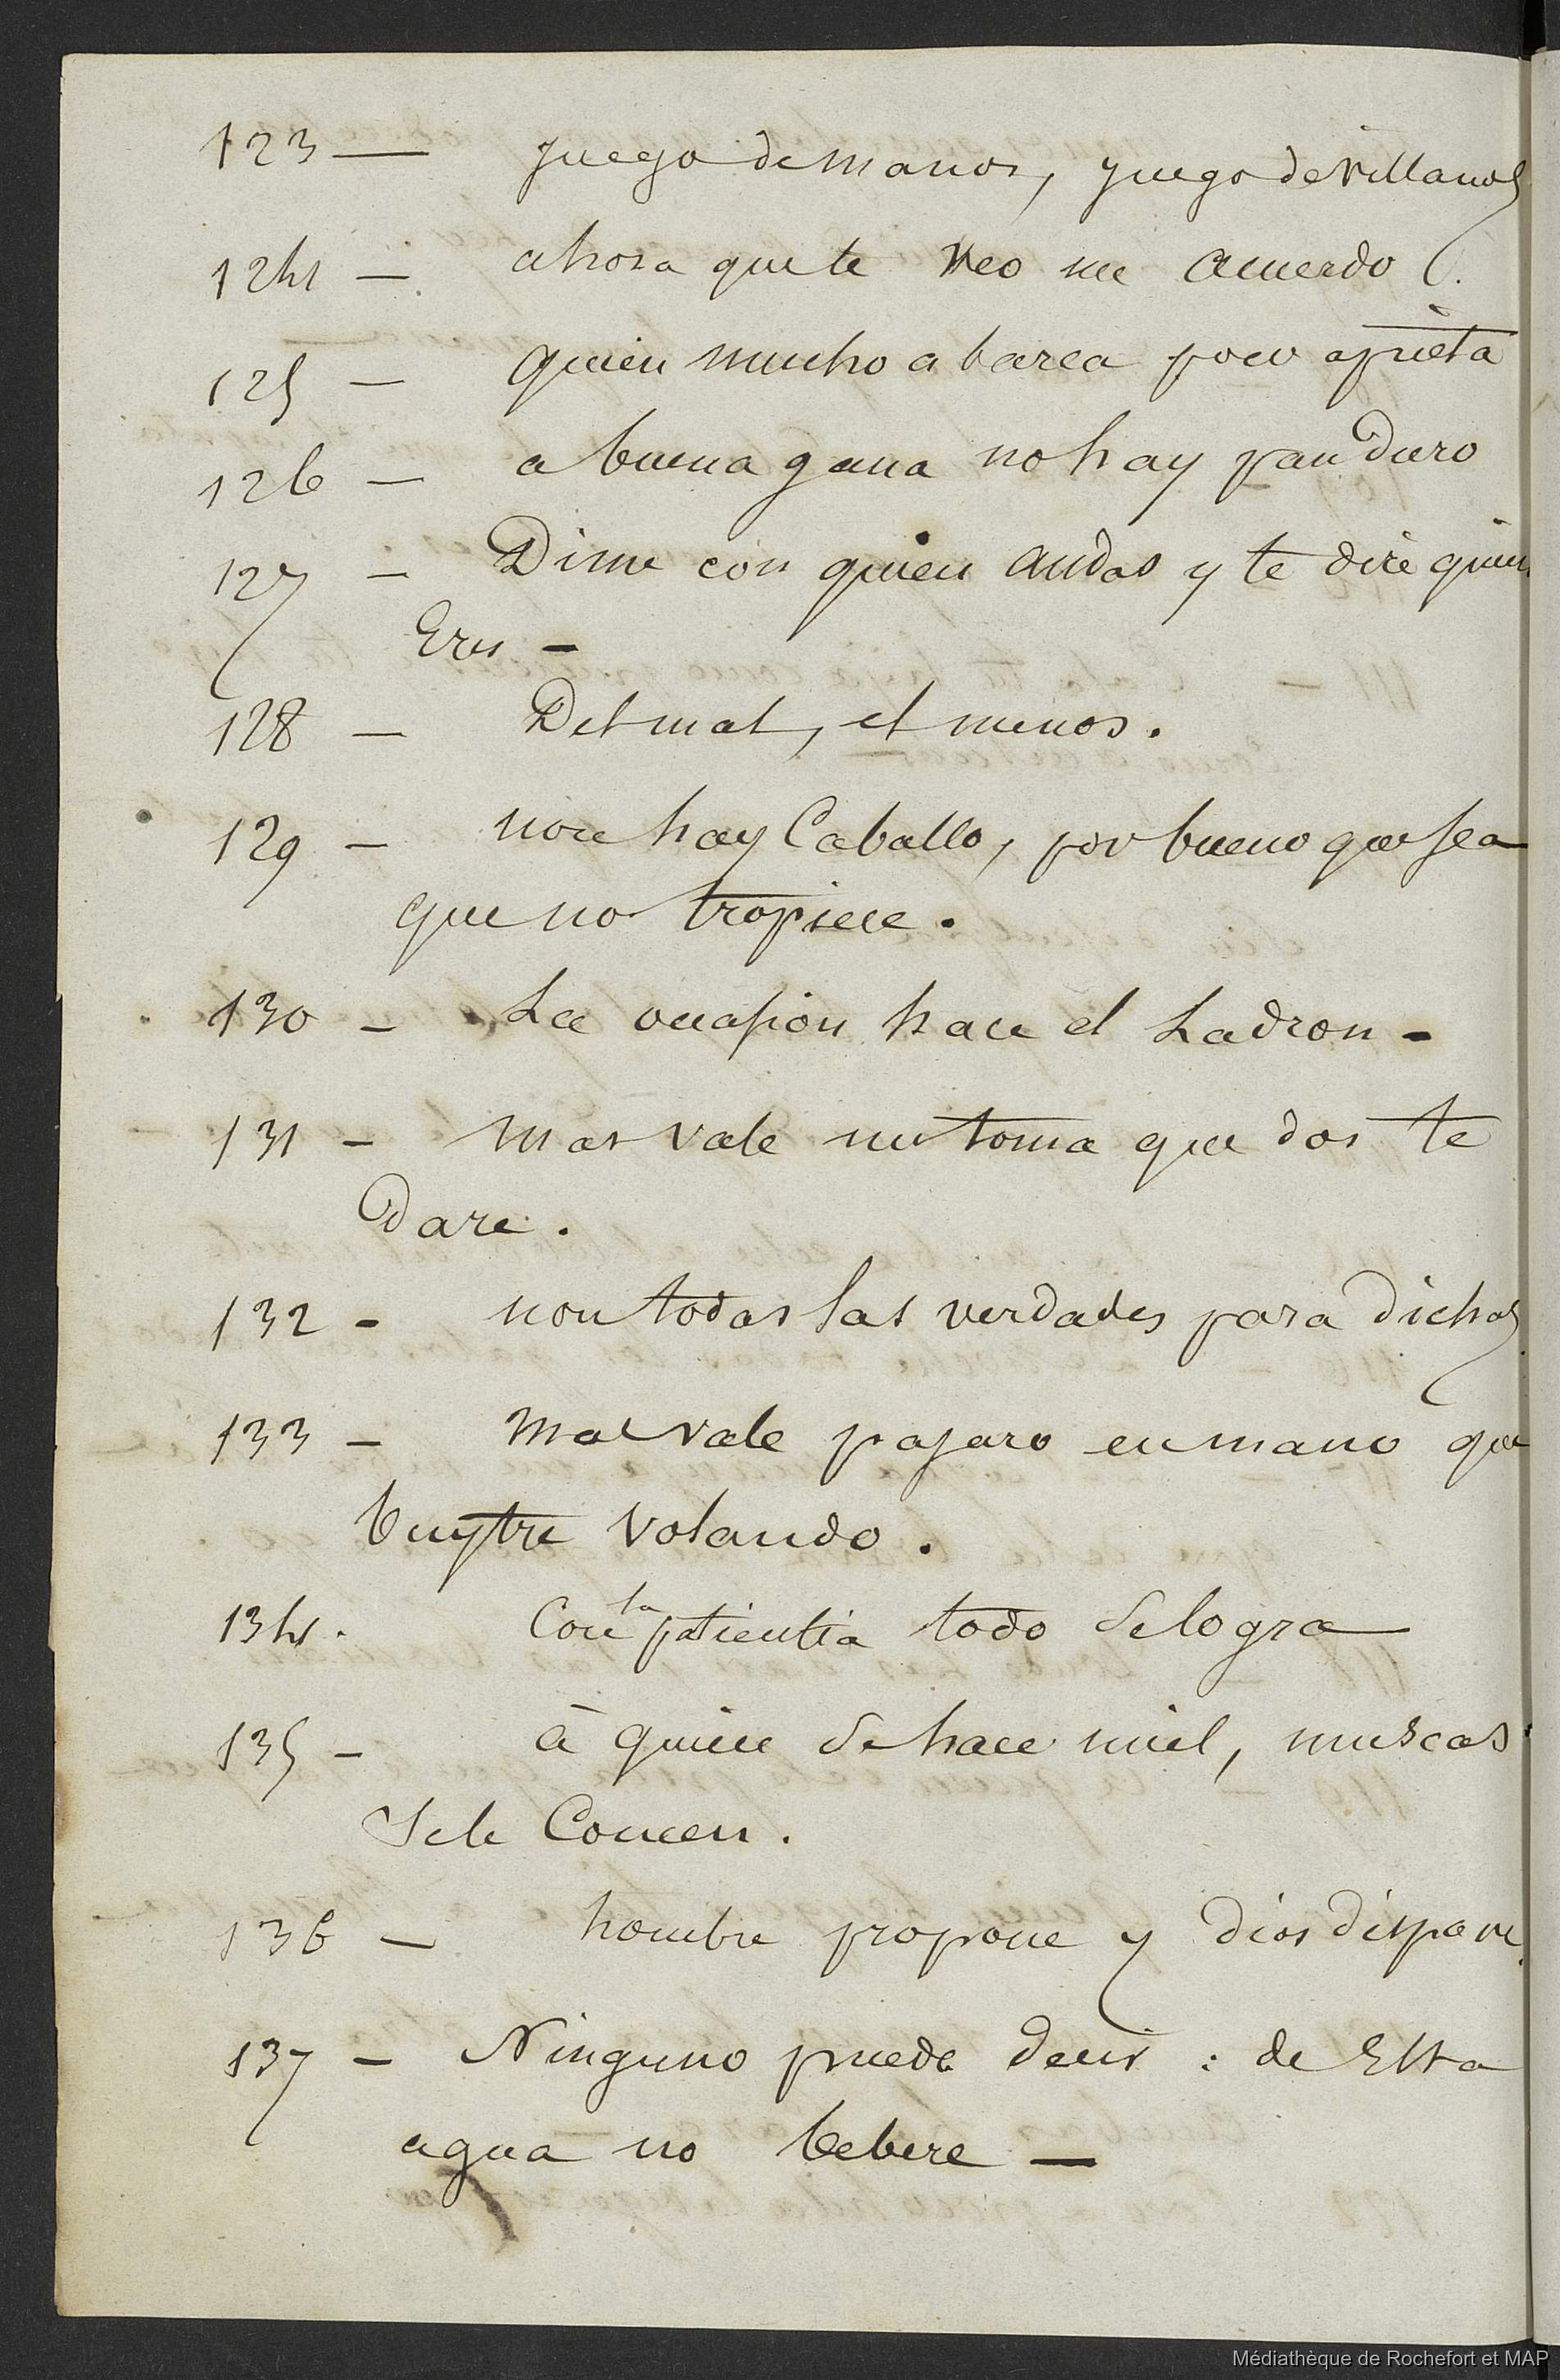 123 — juego de manos, juego de villanos
124 — ahora que te veo me acuerdo.
125 — quien mucho abarca poco aprieta
126 — a buena gana no hay pan duro
127 — Dime con quien andas y te diré quien
Eres —
128 — Del mal, el menos.
129 — non hay Caballo, por bueno que sea
que no tropiece.
130 — La occasion hace el Ladron —
131 — mas vale un toma que dos te
Dare.
132 — non todas las verdades para dichas
133 — mas vale pajaro en mano que
buytre volando.
134. Con la patientia todo se logra
135 — à quien se hace miel, muscas
se le Comen.
136 — hombre propone y dios dispone
137 — Ninguno puede decir : de Esta
agua no bebere —
Médiathèque de Rochefort et MAP